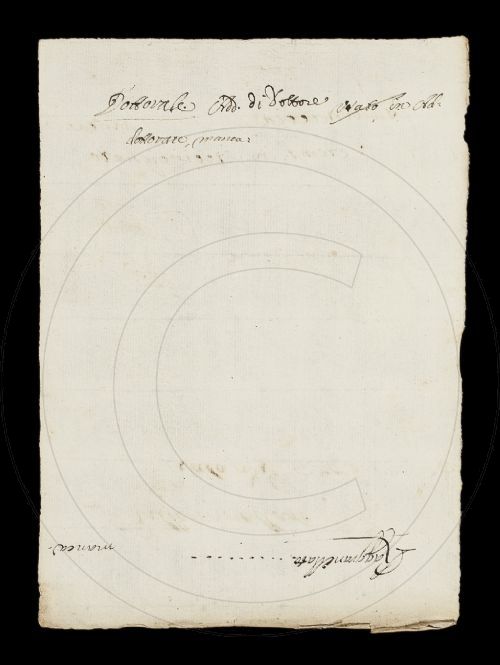 Dottorale. Add. di Dottore usato in Ad-
dottorare, manca.
Raggrinzellato .............. manca.